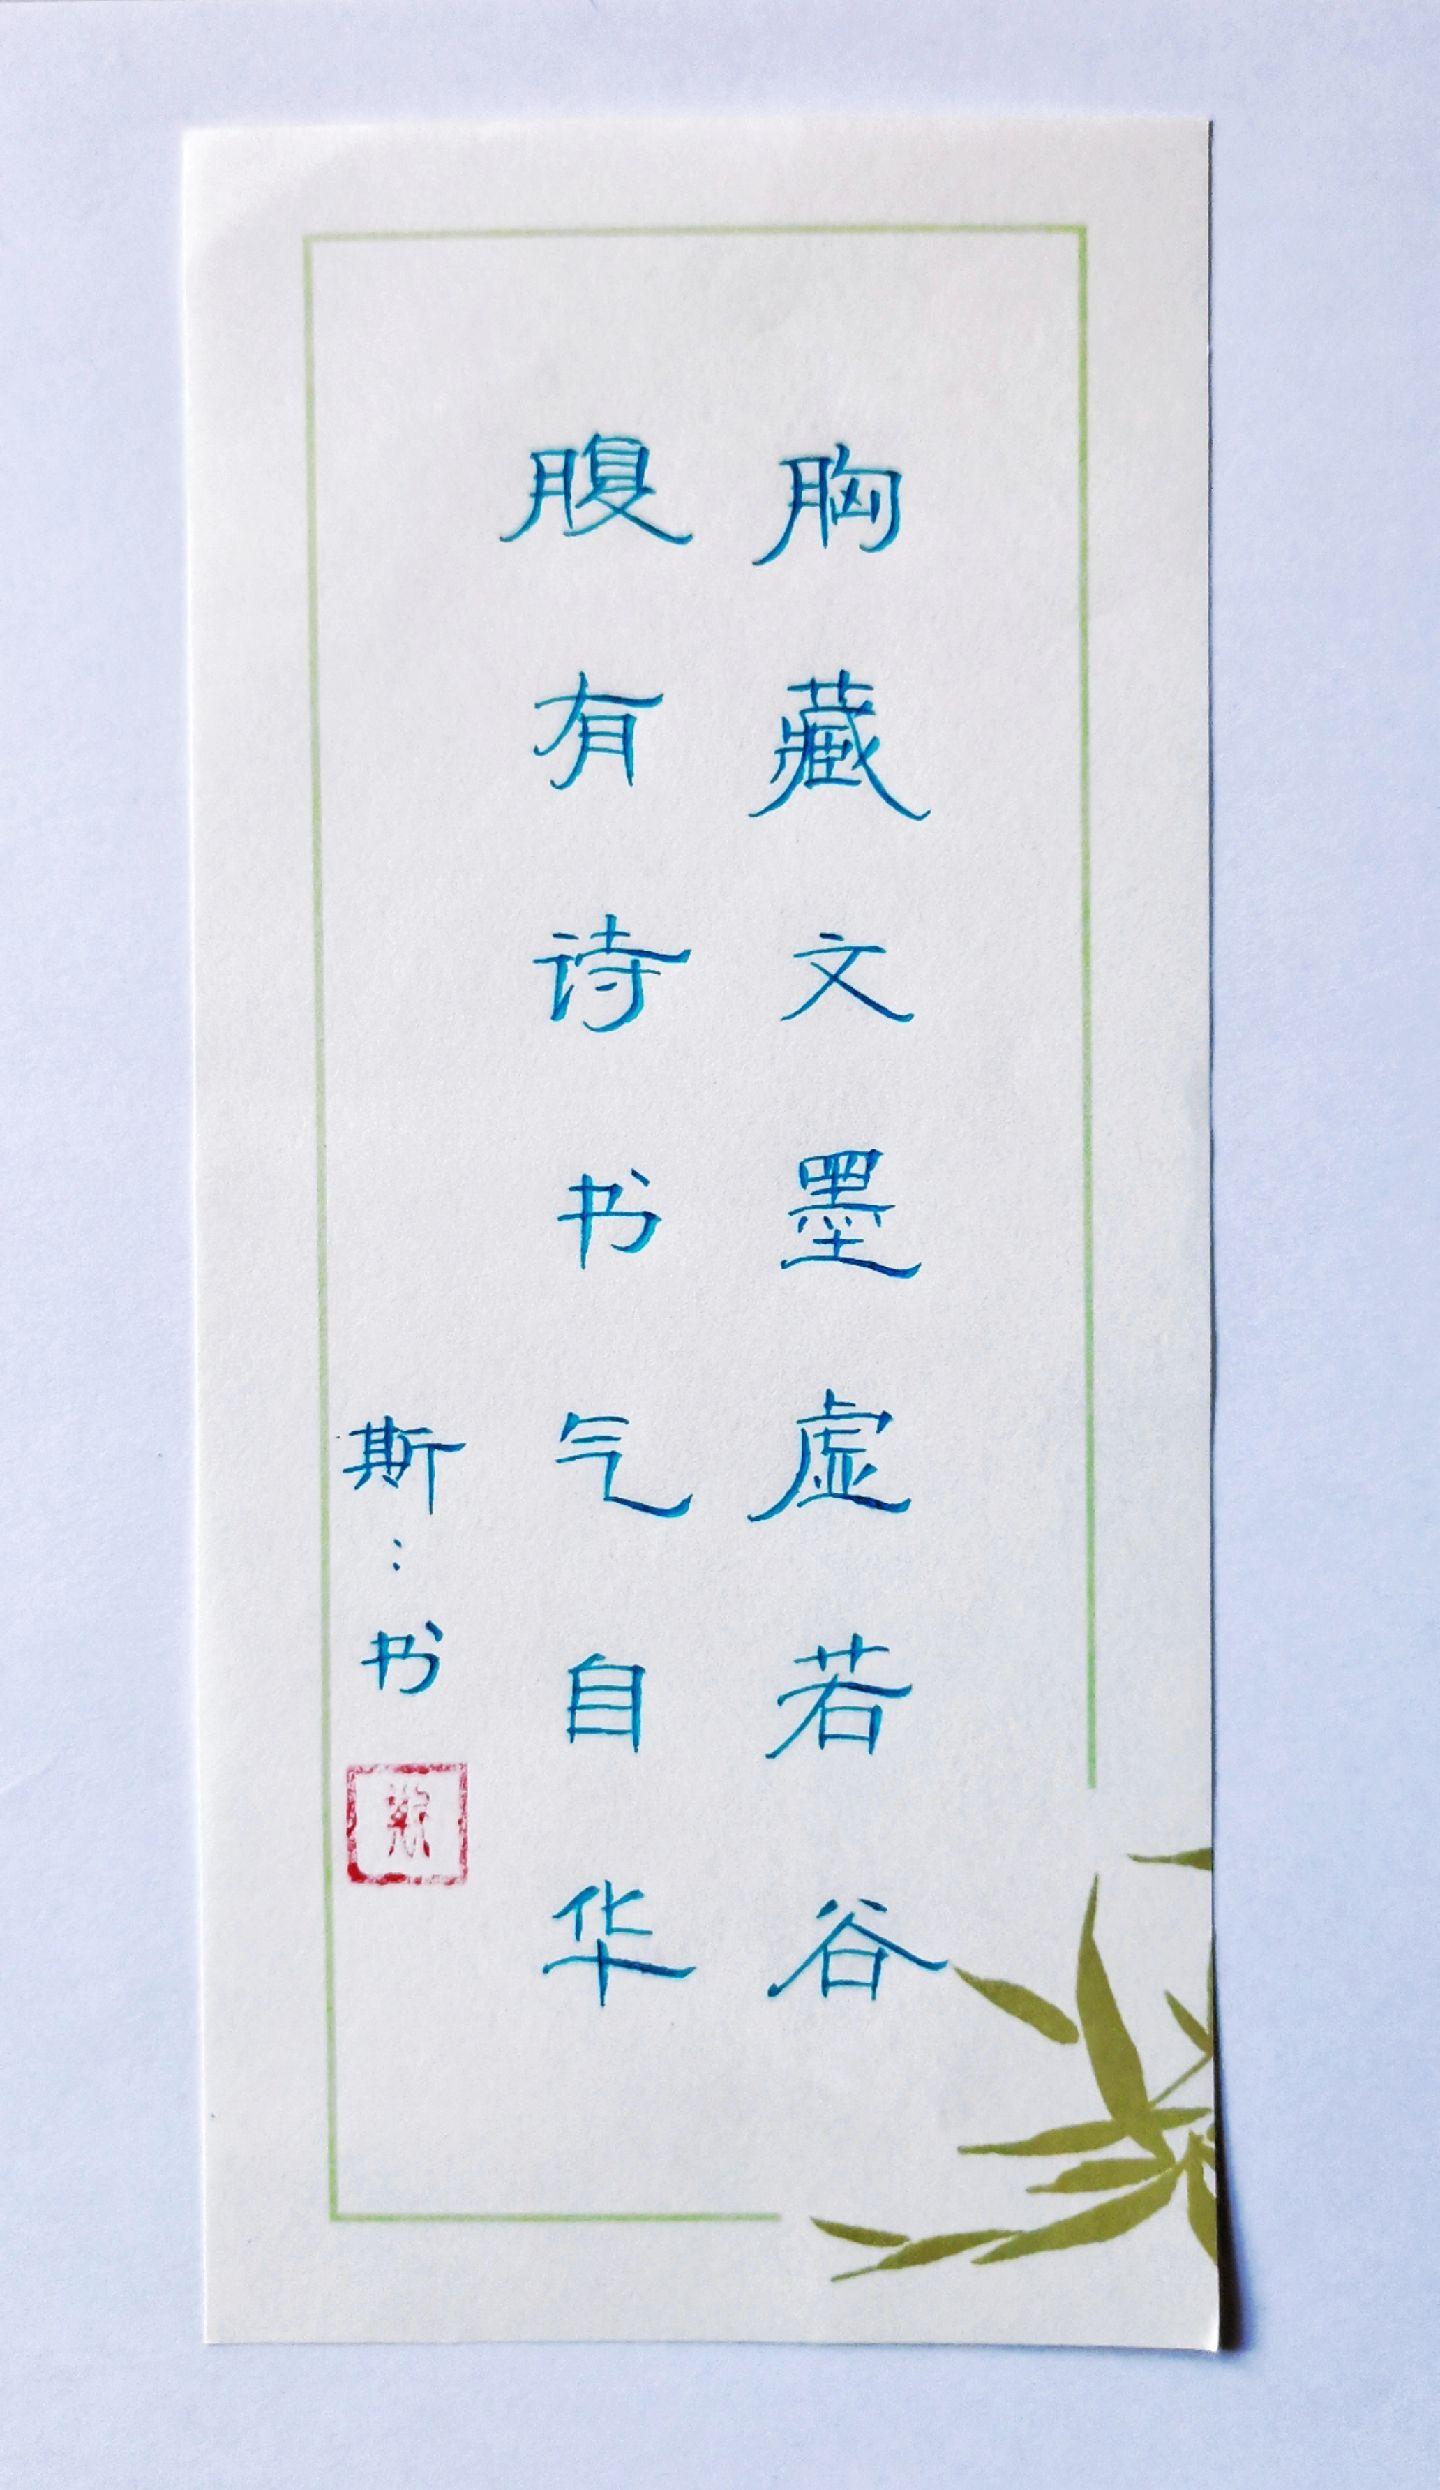 胸藏文墨虚若谷
腹有诗书气自华
斯：书